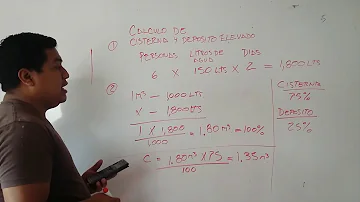 CALCULO DE
① CISTERNA Y DEPOSITO ELEVADO
PERSONAS LITROS DE AGUA DIAS
6 X 150 LTS X 2 = 1,800 LTS
② 1M³ - 1000 LTS
X - 1,800 LTS
1 X 1,800 / 1000 = 1.80 M³ = 100%
C = 1.80 M³ X 75 / 100 = 1.35 M³
CISTERNA
75%
DEPOSITO
25%